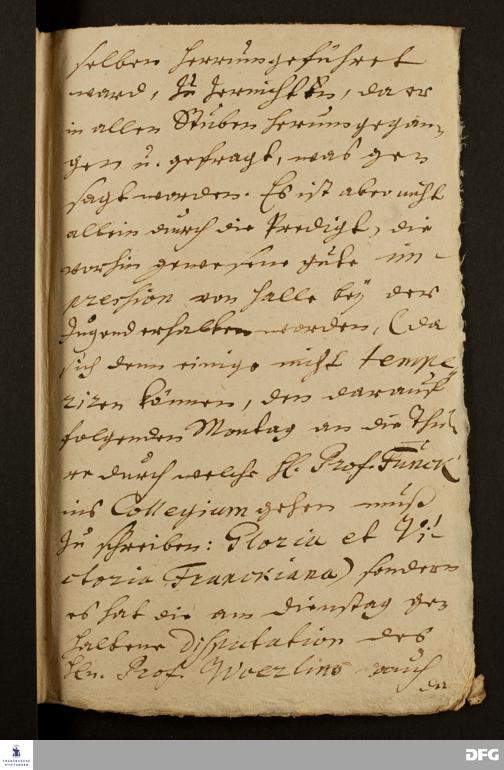 selben herrumgeführet
ward, zu zernichten, da er
in allen Stuben herrumgegan„
gen u. gefragt, was ge„
sagt worden. Es ist aber nicht
allein durch die Predigt, die
vorhin gewesene gute im-
pression von Halle beÿ der
Jugend erhalten worden, (da
sich denn einige nicht tempe„
riren können, den darauf
folgenden Montag an die Thü„
re durch welche H. Prof. Funck
ins Collegium gehen muß
zu schreiben: Gloria et Vi-
ctoria Franckiana) sondern
es hat die am Dienstag ge„
haltene Disputation des
Hn. Prof. Woerlins auch
da
FRANCKESCHE
STIFTUNGEN
DFG